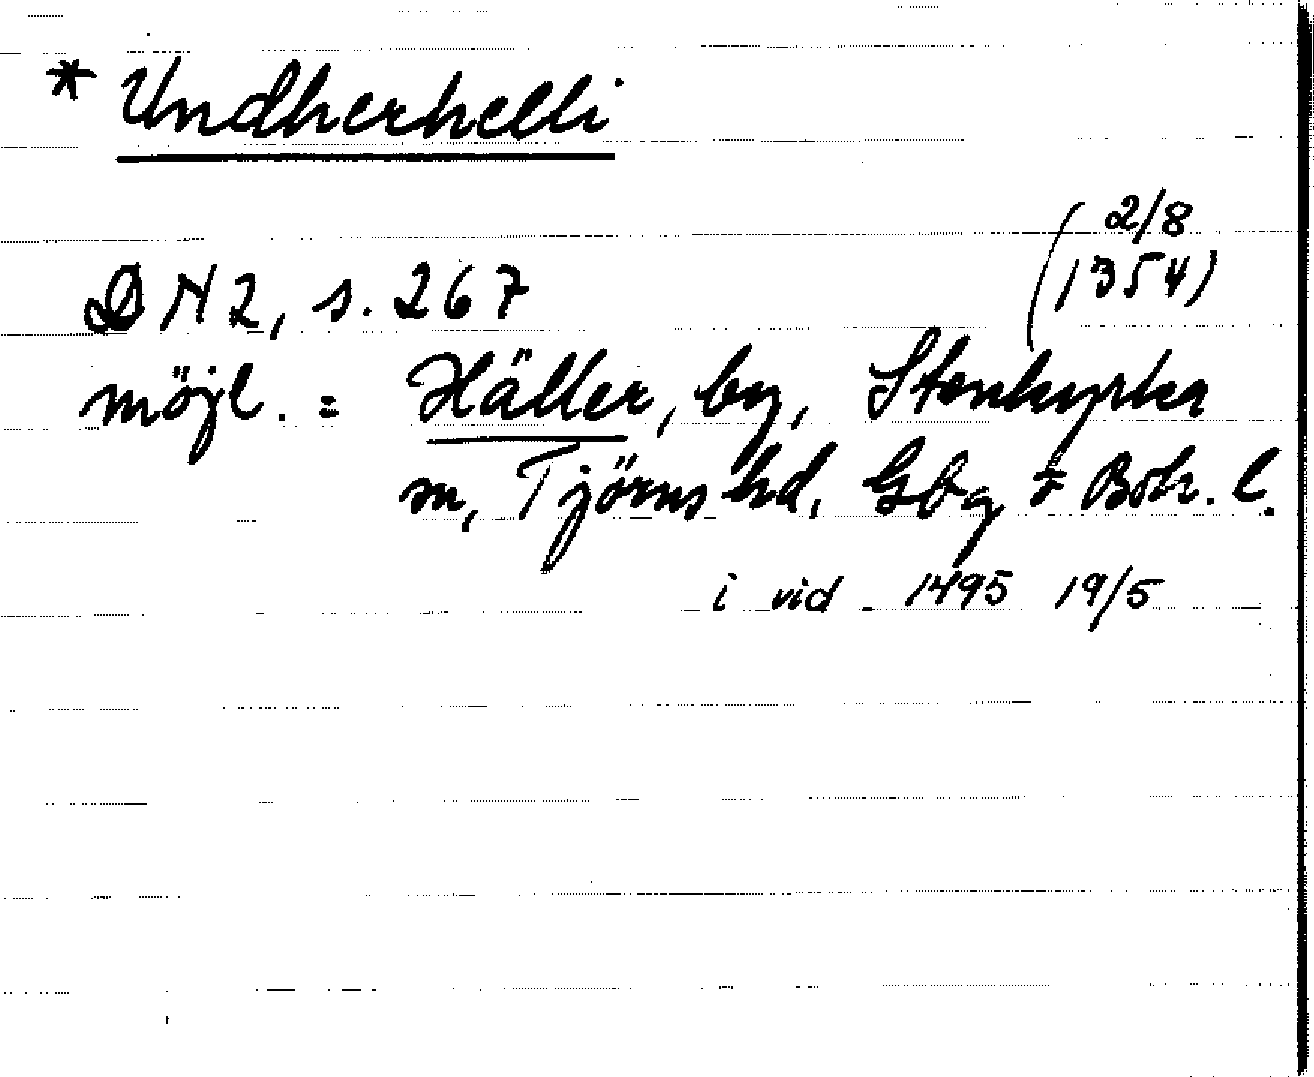 * Undherhelli
(2/8
1354)
DN 2, s. 267
möjl. = Häller, by, Stenkyrka
sn, Tjörns hd, Gbg o Boh. l.
i vid 1495 19/5